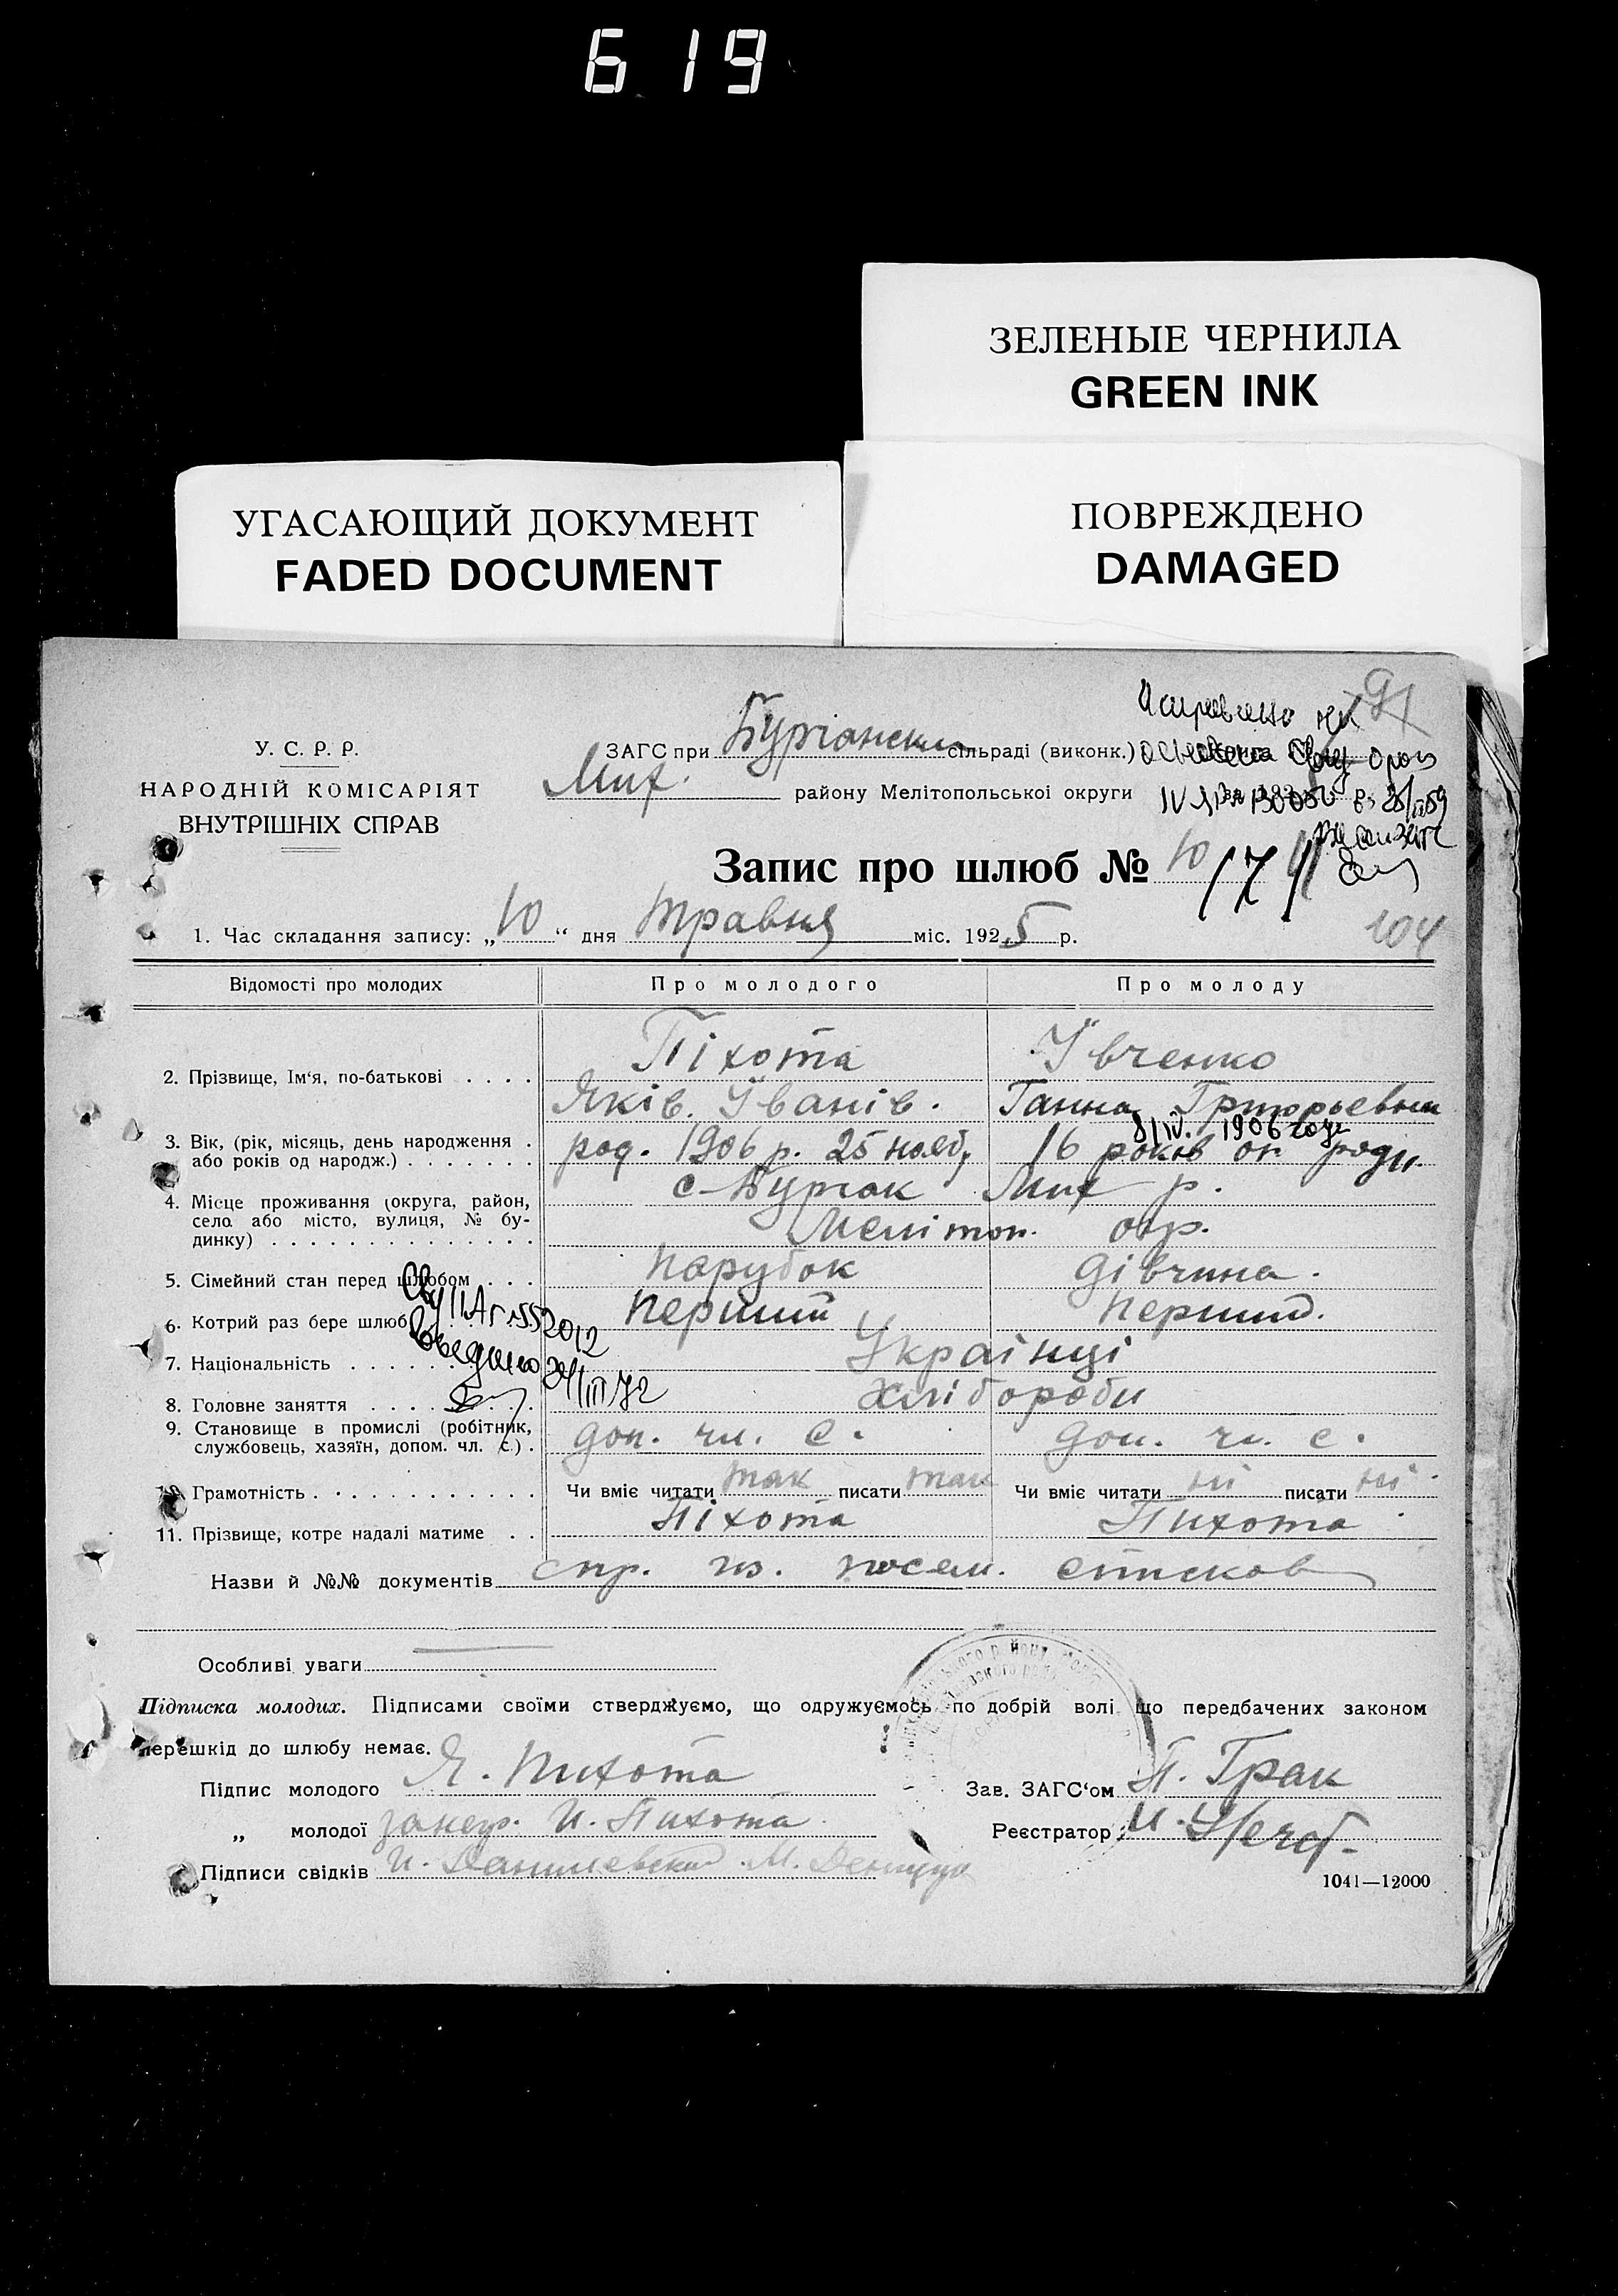 619
ЗЕЛЕНЫЕ ЧЕРНИЛА
GREEN INK
УГАСАЮЩИЙ ДОКУМЕНТ
FADED DOCUMENT
ПОВРЕЖДЕНО
DAMAGED
91
У. С. Р. Р.
НАРОДНІЙ КОМІСАРІЯТ
ВНУТРІШНІХ СПРАВ
ЗАГС при сільраді (виконк.)
Мих. району Мелітопольскоі округи
Запис про шлюб № 10
104
1. Час складання запису: „10“ дня Травня міс. 1925 р.
Відомості про молодих Про молодого Про молоду
Піхота Ївченко
2. Прізвище, Ім‘я, по-батькові . . . .
Яків. Їванів. Ганна Григорьевна
8/IV. 1906 года
3. Вік, (рік, місяць, день народження .
або років од народж.) . . . . . . . род. 1906 р. 25 нояб. 16 років от роду.
4. Місце проживання (округа, район,
село або місто, вулиця, № бу-
динку) . . . . . . . . . . . . . .
с-Бурчак Мих р.
Мелітоп. окр.
5. Сімейний стан перед шлюбом . . . парубок дівчина.
6. Котрий раз бере шлюб перший перший.
7. Національність . . . . . . Українці
8. Головне заняття . . . . . . . Хлібороби
9. Становище в промислі (робітник,
службовець, хазяїн, допом. чл. с.) . доп. чл. с. доп. чл. с.
10. Грамотність . . . . . . . . . . . . Чи вміє читати так писати так Чи вміє читати ні писати ні
11. Прізвище, котре надалі матиме . . Піхота Пихота
Назви й №№ документів спр. из посем. списков
Особливі уваги
Підписка молодих. Підписами своїми стверджуємо, що одружуємось по добрій волі що передбачених законом
перешкід до шлюбу немає.
Підпис молодого Я. Пихота Зав. ЗАГС‘ом П. Грак
„ молодої за негр. И. Пихота Реєстратор И.
Підписи свідків И. Данилевский М.
1041—12000